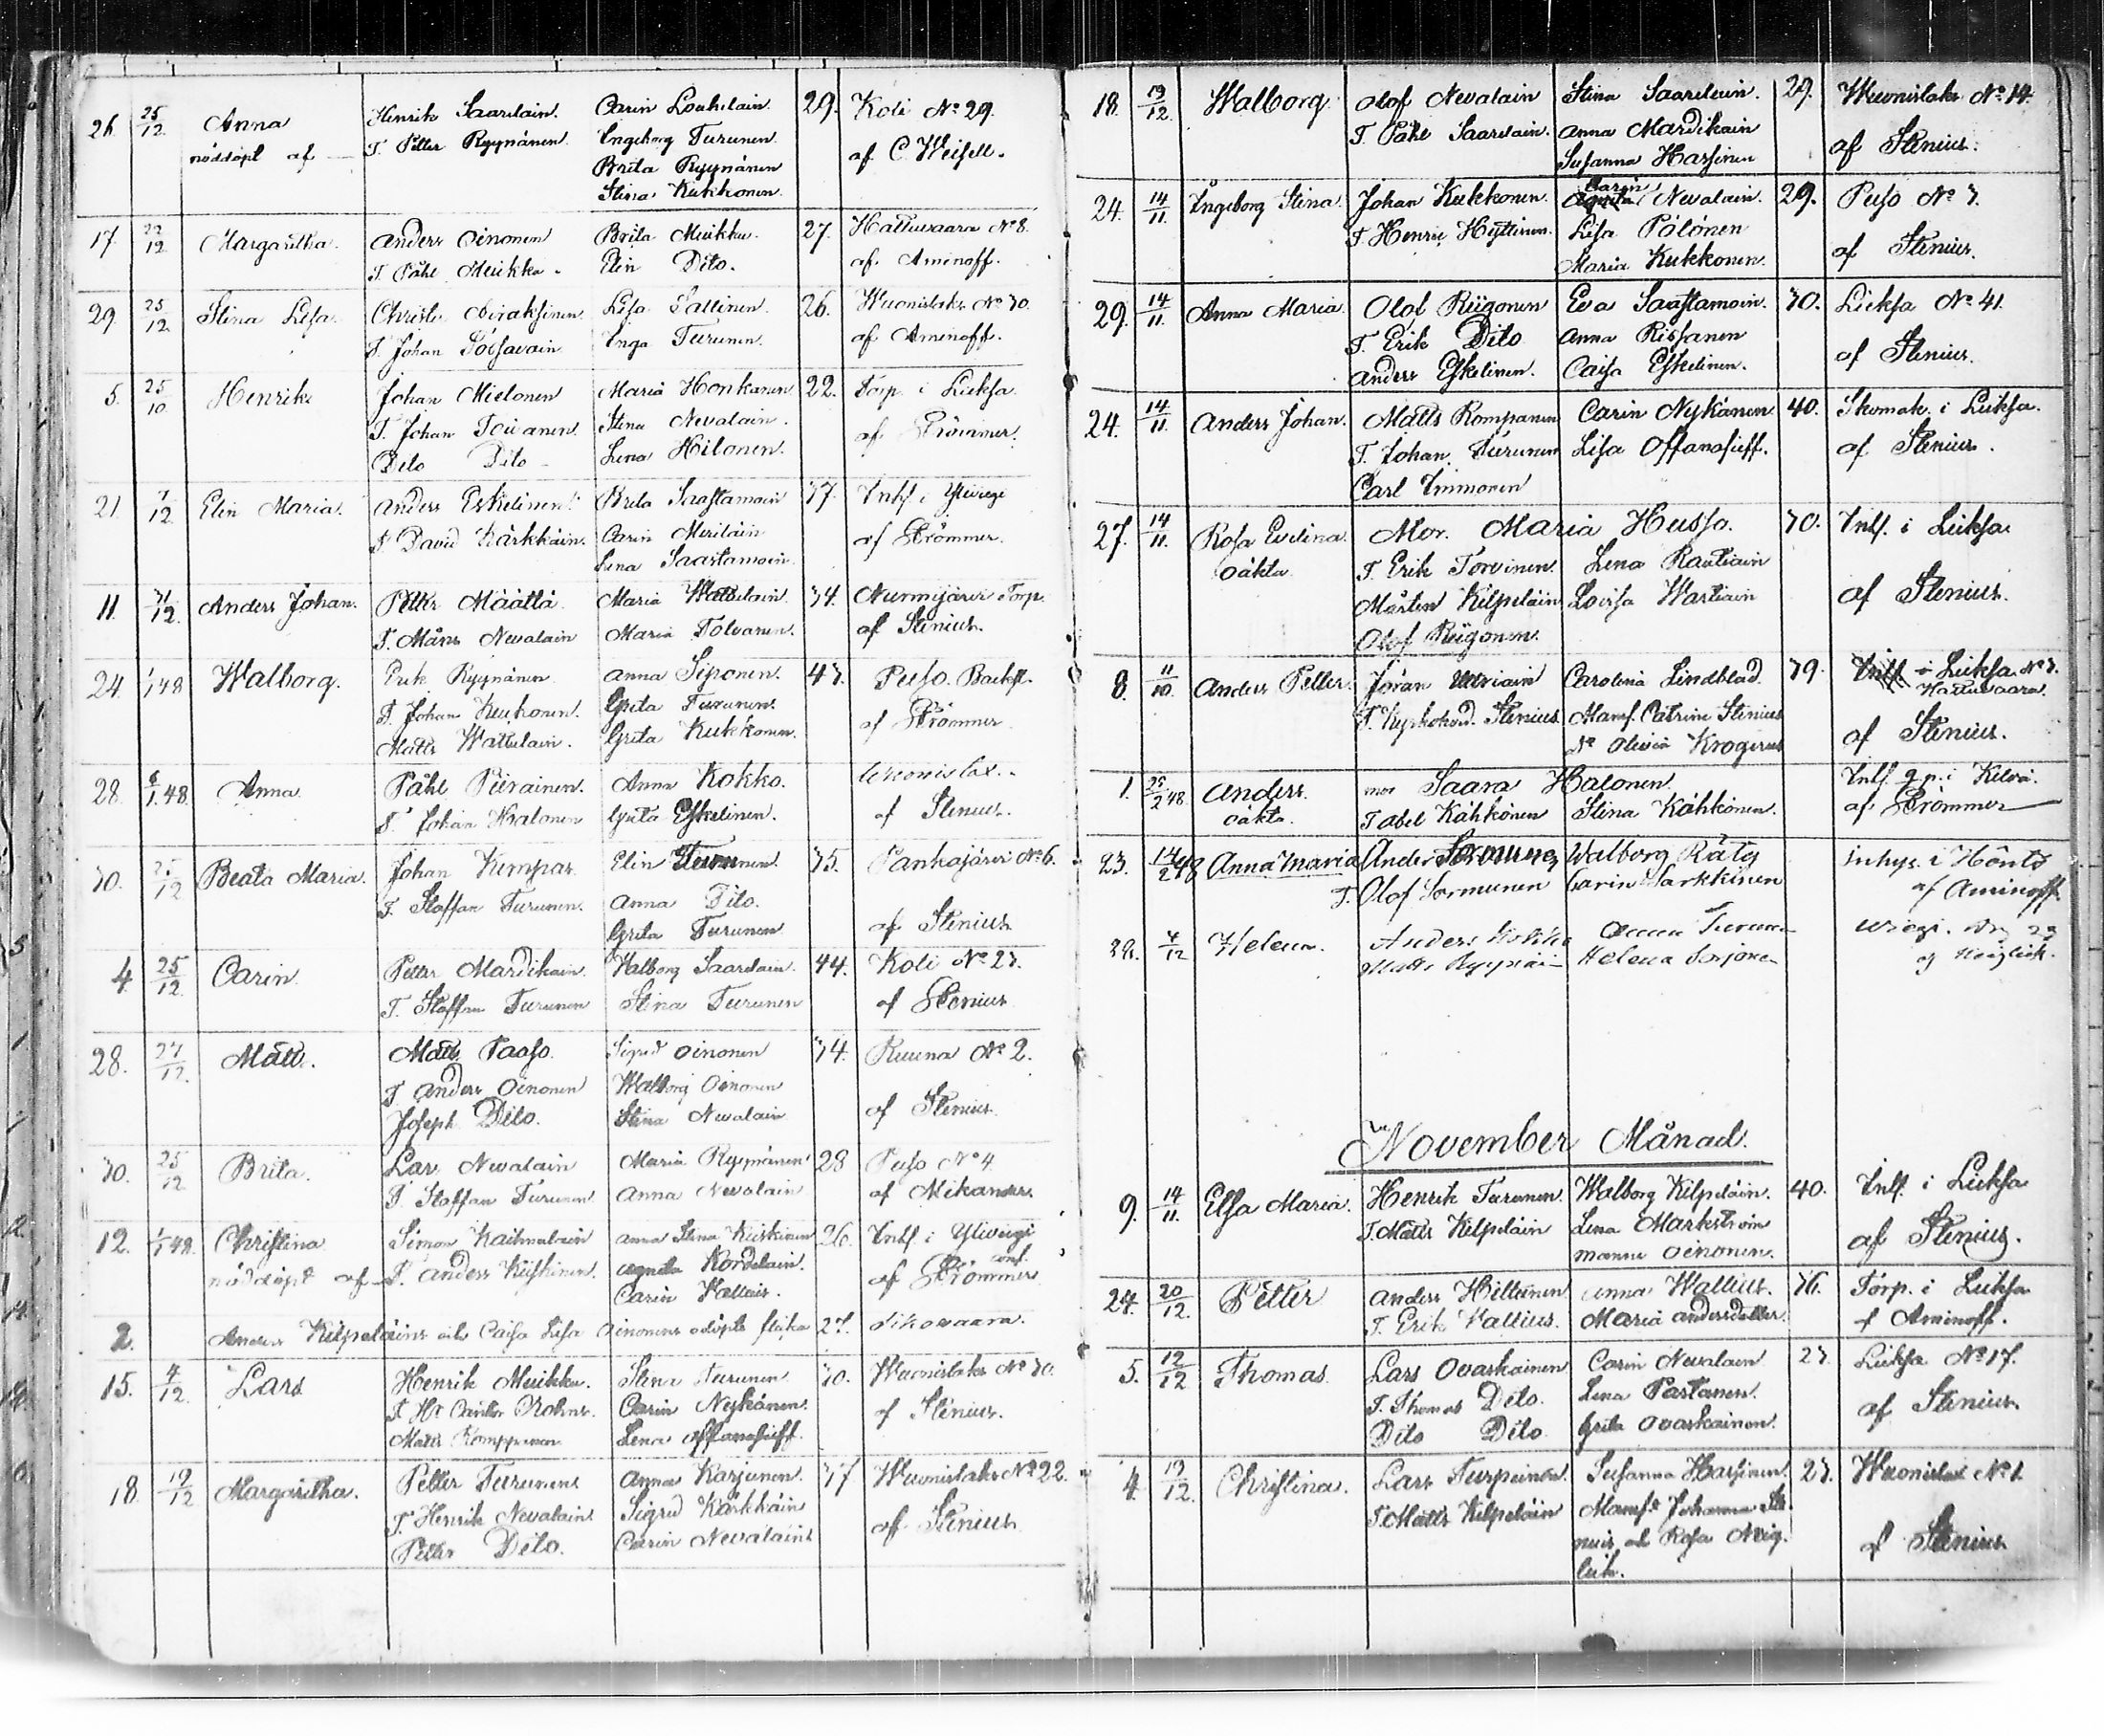 26. 25/12. Anna Henrik Saarelain. Carin Loukelain. 29. Koli No 29.
nöddöpt af — T. Petter Ryynänen Ingeborg Turunen. af C. Weisell.
Brita Ryynänen
Stina Kukkonen.
17. 22/12 Margaritha. Anders Oinonen Brita Muikku. 27. Hattuvaara No 8.
T. Påhl Muikku. Elin Dito. af Aminoff.
29. 25/12. Stina Lisa. Christer Lisa Sallinen. 26. Wuonislaks No 30.
T. Johan Inga Turunen. af Aminoff.
5. 25/10. Henrik Johan Mielonen Maria Honkanen 22. Torp. i Lieksa.
T. Johan Toivanen. Stina Nevalain. af Strömmer.
Dito Dito Lena Hilonen.
21 7/12. Elin Maria. Anders Eskelinen. Brita Saastamoin 37. Inhs. i Yliviegi
T. David Kärkkäin. Carin Meriläin af Strömmer.
Lena Saastamoin.
11. 31/12. Anders Johan. Petter Määttä. Maria Wattulain. 34. Nurmijärvi Torp.
T. Måns Nevalain Maria Tolvanen. af Stenius.
24. 1/1 48 Walborg. Erik Ryynänen Anna Siponen. 43. Puso. Backst.
T. Johan Kukkonen. Greta Turunen. af Strömmer
Matts Wattulain. Greta Kukkonen.
28. 6/1. 48. Anna. Påhl Piirainen. Anna Kokko. Wuonislax.
T. Johan Halonen Greta Eskelinen. af Stenius.
30. 25/12 Beata Maria. Johan Kempas Elin Turunen. 35. Pankajärvi No 6.
T. Staffan Turunen. Anna Dito. af Stenius
Greta Turunen
4. 25/12. Carin. Petter Mardikain. Walborg Saarelain. 44. Koli No 23.
T. Staffan Turunen Stina Turunen af Stenius
28. 27/12. Matts. Matts Paaso. Sigrid Oinonen 34. Ruuna No 2.
T. Anders Oinonen Walborg Oinonen af Stenius.
Joseph Dito. Stina Nevalain
30. 25/12 Brita. Lars Nevalain Maria Ryynänen 28 Puso No 4
T. Staffan Turunen. Anna Nevalain af Mikander.
12. 1/1 48. Christina Simon Kaikulain Anna Stina Kiiskinen 26. Inhs. i Yliviegi
nöddöpt af T. Anders Kiiskinen. Agneta Kordelain. af Strömmer
Carin Wallius.
2. Anders Kilpeläins och Caisa Lisa Oinonens odöpta flicka 27. Sikovaara.
15. 4/12. Lars Henrik Muikku. Stina Turunen 30. Wuonislaks No 30.
T. Hr Cantor Carin Nykänen. af Stenius.
Matts Romppanen Lena Affanasieff.
18. 19/12 Margaritha. Petter Turunen Anna Karjunen. 37 Wuonislaks No 22.
T. Henrik Nevalain Sigrid Kärkkäin af Stenius
Petter Dito. Carin Nevalain
18. 19/12. Walborg. Olof Nevalain Stina Saarelain. 29. Wuonislaks No 14.
T. Påhl Saarelain. Anna Mardikain af Stenius.
Susanna Hassinen
24. 14/11. Ingeborg Stina. Johan Kukkonen. Carin Nevalain. 29. Puso No 3.
T. Henric Hyttinen. Lisa Pölönen af Stenius.
Maria Kukkonen.
29. 14/11. Anna Maria. Olof Riigonen Eva Saastamoin. 30. Lieksa No 41.
T. Erik Dito Anna Rissanen af Stenius.
Anders Eskelinen. Caisa Eskelinen.
24. 14/11. Anders Johan. Matts Rompanen Carin Nykänen 40. Skomak. i Lieksa.
T. Johan Turunen Lisa Offanasieff. af Stenius.
Carl Immonen
27. 14/11. Rosa Evelina. Mor. Maria Husso. 30. Inhs. i Lieksa.
oäkta T. Erik Torvinen. Lena Rautiain af Stenius.
Mårten Kilpeläin Lovisa Wartiain
Olof Riigonen.
8. 11/10. Anders Petter. Jöran Carolina Lindblad. 39. Inhs. i Lieksa. No 3. Hattuvaara.
T. Kyrkoherd. Stenius. Mams. Catrine Stenius af Stenius.
Do Olivia Krogerus
1. 25/2 48. Anders. mor Saara Halonen. Inhs. g.p. i Kelvä.
oäkta. T Abel Kähkönen Stina Kähkönen. af Strömmer
23. 14/2 48 Anna Maria Anders Sormunen Walborg Räty inhys. i Höntö
T. Olof Sormunen Carin Sarkkinen af Aminoff.
28. 4/12 Helena. Anders Kokko Anna Turunen Wiegi. No 23
Matts Ryynän Helena Sorjonen af Neiglick.
November Månad.
9. 14/11. Elsa Maria. Henrik Turunen. Walborg Kilpeläin. 40. Inhs. i Lieksa
T. Matts Kilpeläin Lena Markström af Stenius.
Manne Oinonen.
24. 20/12. Petter Anders Hiltunen Anna Wallius. 36. Torp. i Lieksa
T. Erik Wallius. Maria Andersdotter. af Aminoff.
5. 12/12 Thomas. Lars Ovaskainen Carin Nevalain 23. Lieksa No 17.
T. Thomas Dito. Lena Partanen. af Stenius.
Dito Dito. Greta Ovaskainen.
4. 19/12. Christina. Lars Turpeinen. Susanna Hassinen. 23. Wuonislax No 1.
T. Matts Kilpeläin Mams. Johanna Ste- af Stenius
nius och Rosa Neig-
lick.